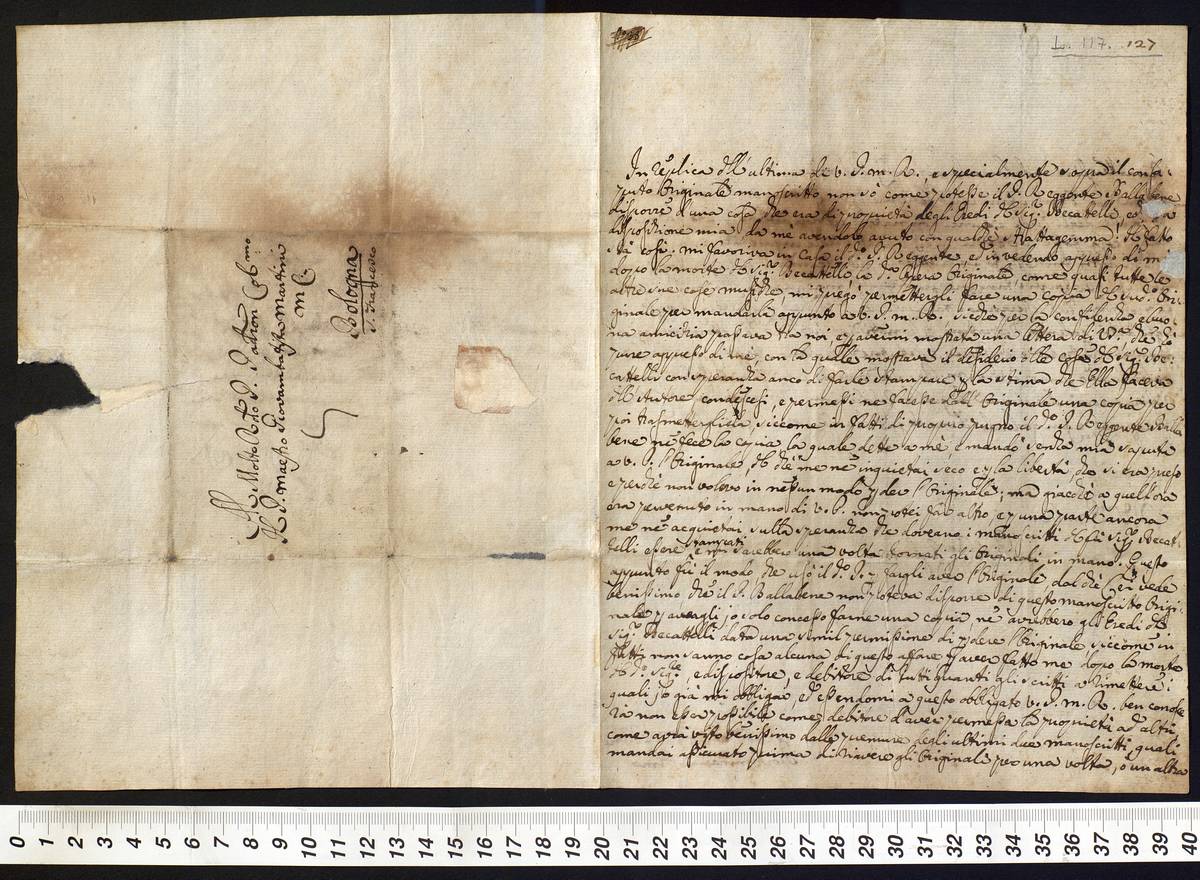 L. 117. 127
Al Molto Rdo P. Patron Colmo
Il P. Maestro Giovambatista Martini
M. C.
Bologna
S. Francesco
In replica dell'ultima di V. P. M. R., e specialmente sopra il consa-
puto Originale manoscritto non sò come potesse il P. Reggente Ballabene
disporre d'una cosa che era di proprietà degli Eredi del Sigr. Becattelli, e
disposizione mia da mè avendolo avuto con qualche strattagemma! Il fatto
stà così. mi favoriva in Casa il do. P. Regente, e in vedendo appresso di mè
dopo la morte del Sigr. Becattelli la da. Opera Originale, come quasi tutte le
altre sue cose musiche, mi pregò permettergli fare una copia del sudo. Ori-
ginale per mandarla appunto a V. P. M. R. siccome per la confidenza e buo-
na amicizia passava tra noi e per avermi mostrata una lettera di V. P. che hò
pure appresso di me, con la quale mostrava il desiderio delle cose del Sigr. Be-
cattelli con speranza anco di farle stampare per la stima che Ella faceva
dell'Autore condescesi, e permessi ne facesse dall'Originale una copia per
poi trasmettergliela, siccome in fatti di proprio pugno il do. P. Reggente Balla
bene ne fece la copia la quale dette a mè e mandò senza mia saputa
a V. P. l'Originale, del che me ne inquietai seco e per la libertà, che si era preso
e perche non volevo in nessun modo perder l'Originale; ma giacche a quell'ora
era pervenuto in mano di V. P. non potei far altro, e per una parte ancora
me ne acquietai sulla speranza che dovevano i manoscritti del fù Sigr. Becat-
telli essere stampati e mi sarebbero una volta tornati gli Originali in mano. Questo
appunto fù il modo, che usò il do. P. per fargli aver l'Originale, dal che Ella vede
benissimo che il P. Ballabene non poteva disporre di questo manoscritto Origi-
nale per avergli io solo concesso farne una copia nè avrebbero gli Eredi del
Sigr. Becattelli data una simil permissione di perdere l'Originale, siccome in
fatti non sanno cosa alcuna di questo affare per aver fatto me dopo la morte
del do. Sigre., e dispositore, e debitore di tutti quanti gli scritti a rimettere i
quali io già mi obbligai, ed essendomi a questo obbligato V. P. M. R. ben conosce
rà non esser possibile come debitore d'aver permessa la proprietà ad altri
come avrà visto benissimo dalle premure degli ultimi due manoscritti quali
mandai assicurato prima di riavere gli Originali per una volta, o un altra